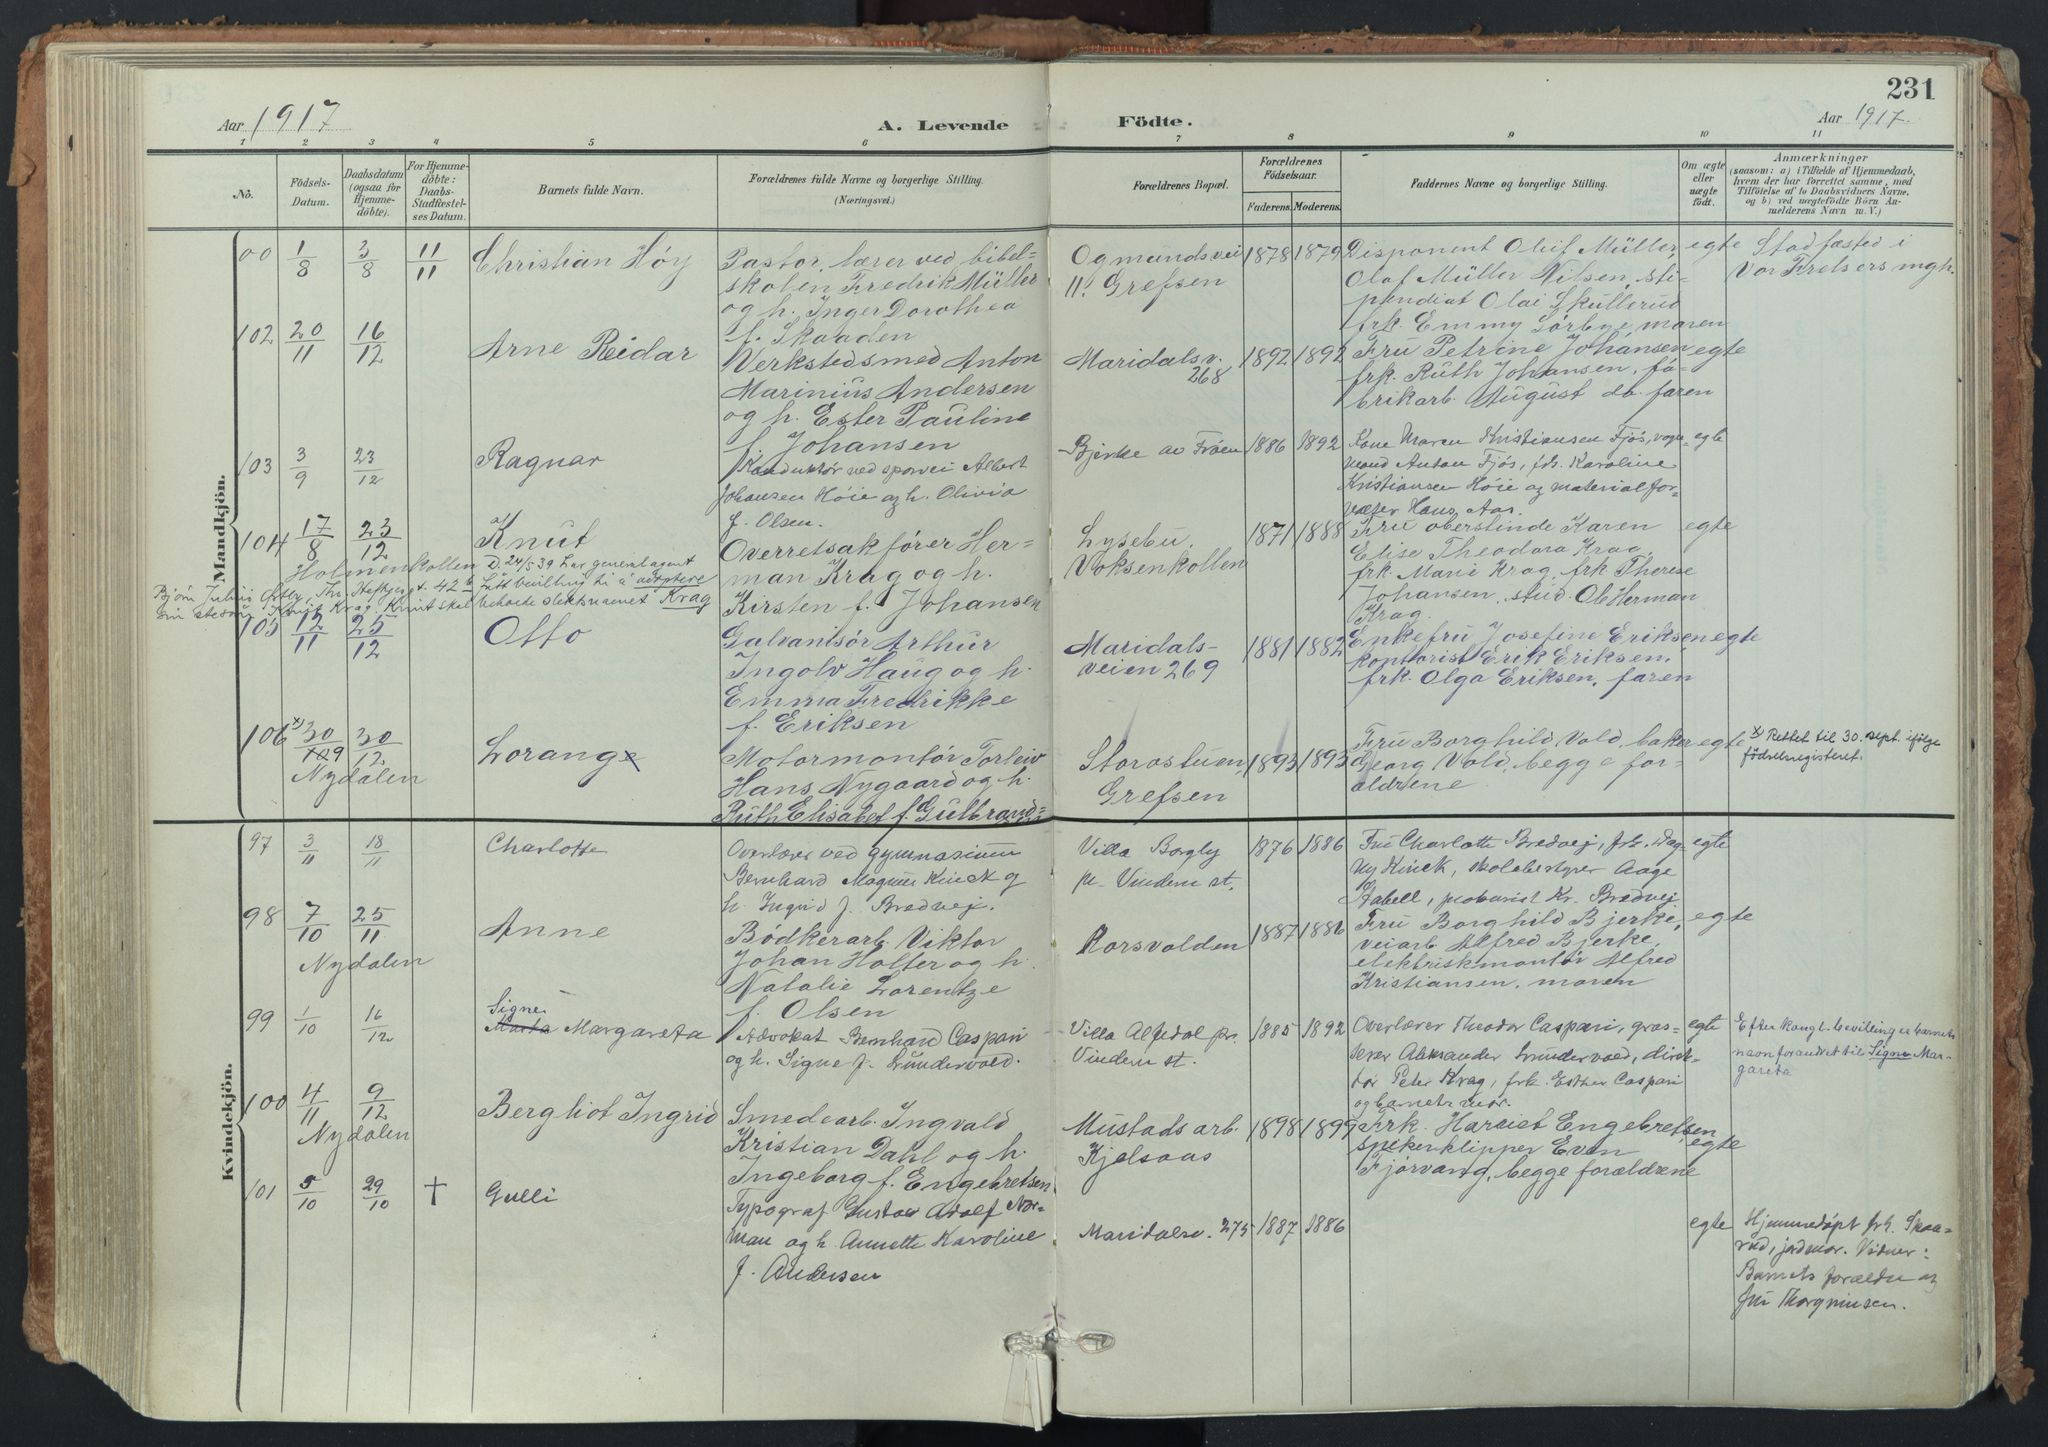 231
Aar 1917
A. Levende Födte.
Aar 1917.
1 2 3 4 5 6 7 8 9 10 11
No.
Födsels-
Datum.
Daabsdatum
(ogsaa for
Hjemme-
döbte).
For Hjemme-
döbte:
Daabs-
Stadfæstel-
ses Datum.
Barnets fulde Navn.
Forældrenes fulde Navne og borgerlige Stilling.
(Næringsvei.)
Forældrenes Bopæl.
Forældrenes
Födselsaar.
Faderens. Moderens.
Faddernes Navne og borgerlige Stilling.
Om ægte
eller
uægte
födt.
Anmærkninger
(saasom: a) i Tilfælde af Hjemmedaab,
hvem der har forrettet samme, med
Tilföielse af to Daabsvidners Navne,
og b) ved uægtefödte Börn An-
melderens Navn m. V.)
Mandkjön.
00 1/8 3/8 11/11
Christian Höy
Pastor, lærer ved bibel-
skolen Fredrik Müller
og h. Inger Dorothea
f. Skaaden
Ogmundsvei
11. Grefsen
1878 1879
Disponent Oluf Müller,
Olaf Müller Nilsen, sti-
pendiat Olai Skullerud
frk. Emmy Sörbye, moren
egte
Stadfæsted i
Vor Frelsers mgh.
102 20/11 16/12
Arne Reidar
Verkstedsmed Anton
Marinius Andersen
og h. Ester Pauline
f. Johansen
Maridalsv.
268
1892 1892
Fru Petrine Johansen
frk. Ruth Johansen, fa-
brikarb. August do. faren
egte
103 3/9 23/12
Ragnar
Konduktör ved sporvei Albert
Johansen Höie og h. Olivia
f. Olsen.
Bjerke av Fröen
1886 1892
Kone Maren Kristiansen Fjös, vogn-
mand Anton Fjös, frk. Karoline
Kristiansen Höie og materialfor-
valter Hans Aas.
egte
104 17/8 23/12
Holmenkollen
Knut
D. 24/5 39 har generalagent
Björn Julius Östby, Th. Heftyes gt. 42 b fått bevilling til å adoptere
sin stesön Knut Krag. Knut skal beholde slektsnavnet Krag
Overretsakförer Her-
man Krag og h.
Kirsten f. Johansen
Lysebu,
Voksenkollen
1871 1888
Fru oberstinde Karen
Elise Theodora Krag,
frk. Marie Krag, frk Therese
Johansen, stud. Ole Herman
Krag.
egte
105 12/11 25/12
Otto
Galvanisör Arthur
Ingolv Haug og h.
Emma Fredrikke
f. Eriksen
Maridals-
veien 269
1881 1882
Enkefru Josefine Eriksen,
kontorist Erik Eriksen,
frk. Olga Eriksen, faren
egte
106 x) 30/9 30/12
Nydalen
Lorang
Motormontör Torleiv
Hans Nygaard og h.
Ruth Elisabet f. Gulbrand-
Storostuen,
Grefsen
1893 1893
Fru Borghild Vold, baker
Georg Vold, begge for-
ældrene
egte
x) Rettet til 30. sept. ifölge
födselsregisteret.
Kvindekjön.
97 3/11 18/11
Charlotte
Overlærer ved gymnasium
Bernhard Magnus Kinck og
h. Ingrid f. Bredvej.
Villa Borgly
pr. Vindern st.
1876 1886
Fru Charlotte Bredvej, frk. Dag-
ny Kinck, skolebestyrer Aage
Gabell, prokurist Kr. Bredvej.
egte
98 7/10 25/11
Nydalen
Anne
Bödkerarb. Viktor
Johan Holter og h.
Natalie Lorentze
f. Olsen
Korsvolden
1887 1886
Fru Borghild Bjerke,
veiarb. Alfred Bjerke,
elektriskmontör Alfred
Kristiansen, moren
egte
99 1/10 16/12
Signe
Marta Margareta
Advokat Bernhard Caspari
og h. Signe f. Lundervold.
Villa Alfedal pr.
Vindern st.
1885 1892
Overlærer Theodor Caspari, gros-
serer Alexander Lundervold, direk-
tör Peter Krag, frk. Esther Caspari
og barnets mor.
egte
Efter kongl. bevilling er barnets
navn forandret til Signe Mar-
gareta
100 4/11 9/12
Nydalen
Bergliot Ingrid
Smedearb. Ingvald
Kristian Dahl og h.
Ingeborg f. Engebretsen
Mustads arb.
Kjelsaas
1898 1899
Frk. Harriet Engebretsen,
spikerklipper Even
Fjörvang, begge forældrene
egte
101 5/10 29/10 †
Gulli
Typograf Gustav Adolf Nor-
man og h. Annette Karoline
f. Andersen
Maridalsv. 275
1887 1886
egte
Hjemmedöpt frk. Skaa-
rud, jordmor. Vidner:
Barnets forældre og
fru Thorgrimsen.